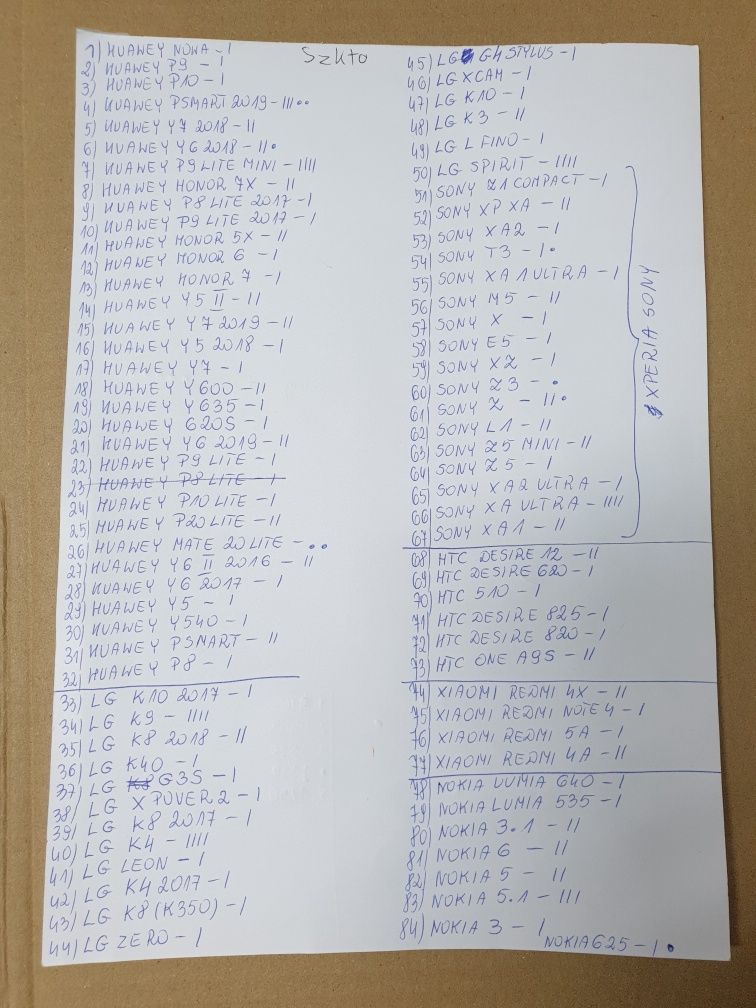 Szkło
1) HUAWEY NOWA - I
2) HUAWEY P9 - I
3) HUAWEY P10 - I
4) HUAWEY PSMART 2019 - III••
5) HUAWEY Y7 2018 - II
6) HUAWEY Y6 2018 - II•
7) HUAWEY P9 LITE MINI - IIII
8) HUAWEY HONOR 7X - II
9) HUAWEY P8 LITE 2017 - I
10) HUAWEY P9 LITE 2017 - I
11) HUAWEY HONOR 5X - II
12) HUAWEY HONOR 6 - I
13) HUAWEY HONOR 7 - I
14) HUAWEY Y5 II - II
15) HUAWEY Y7 2019 - II
16) HUAWEY Y5 2018 - I
17) HUAWEY Y7 - I
18) HUAWEY Y600 - II
19) HUAWEY Y635 - I
20) HUAWEY G20S - I
21) HUAWEY Y6 2019 - II
22) HUAWEY P9 LITE - I
23) HUAWEY P8 LITE - I
24) HUAWEY P10 LITE - I
25) HUAWEY P20 LITE - II
26) HUAWEY MATE 20 LITE - ••
27) HUAWEY Y6 II 2016 - II
28) HUAWEY Y6 2017 - I
29) HUAWEY Y5 - I
30) HUAWEY Y540 - I
31) HUAWEY PSMART - II
32) HUAWEY P8 - I
33) LG K10 2017 - I
34) LG K9 - IIII
35) LG K8 2018 - II
36) LG K40 - I
37) LG G3S - I
38) LG X POVER 2 - I
39) LG K8 2017 - I
40) LG K4 - IIII
41) LG LEON - I
42) LG K4 2017 - I
43) LG K8 (K350) - I
44) LG ZERO - I
45) LG G4 STYLUS - I
46) LG XCAM - I
47) LG K10 - I
48) LG K3 - II
49) LG L FINO - I
50) LG SPIRIT - IIII
51) SONY Z1 COMPACT - I
52) SONY XP XA - II
53) SONY XA2 - I
54) SONY T3 - I•
55) SONY XA1 ULTRA - I
56) SONY M5 - II
57) SONY X - I
58) SONY E5 - I
59) SONY XZ - I
60) SONY Z3 - •
61) SONY Z - II•
62) SONY L1 - II
63) SONY Z5 MINI - II
64) SONY Z5 - I
65) SONY XA2 ULTRA - I
66) SONY XA ULTRA - IIII
67) SONY XA1 - II
XPERIA SONY
68) HTC DESIRE 12 - II
69) HTC DESIRE 620 - I
70) HTC 510 - I
71) HTC DESIRE 825 - I
72) HTC DESIRE 820 - I
73) HTC ONE A9S - II
74) XIAOMI REDMI 4X - II
75) XIAOMI REDMI NOTE 4 - I
76) XIAOMI REDMI 5A - I
77) XIAOMI REDMI 4A - II
78) NOKIA LUMIA 640 - I
79) NOKIA LUMIA 535 - I
80) NOKIA 3.1 - II
81) NOKIA 6 - II
82) NOKIA 5 - II
83) NOKIA 5.1 - III
84) NOKIA 3 - I
NOKIA 625 - I •